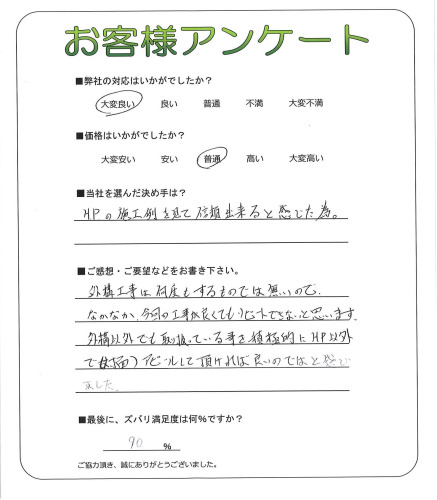 お客様アンケート
■弊社の対応はいかがでしたか?
大変良い 良い 普通 不満 大変不満
■価格はいかがでしたか?
大変安い 安い 普通 高い 大変高い
■当社を選んだ決め手は?
HPの施工例を見て信頼出来ると感じた為。
■ご感想・ご要望などをお書き下さい。
外構工事は何度もするものでは無いので
なかなか、今回の工事が良くてもリピートできないと思います
外構以外でも取り扱っている事を積極的にHP以外
で アピールして頂ければ良いのではと感じ
ました。
■最後に、ズバリ満足度は何%ですか?
90 %
ご協力頂き、誠にありがとうございました。